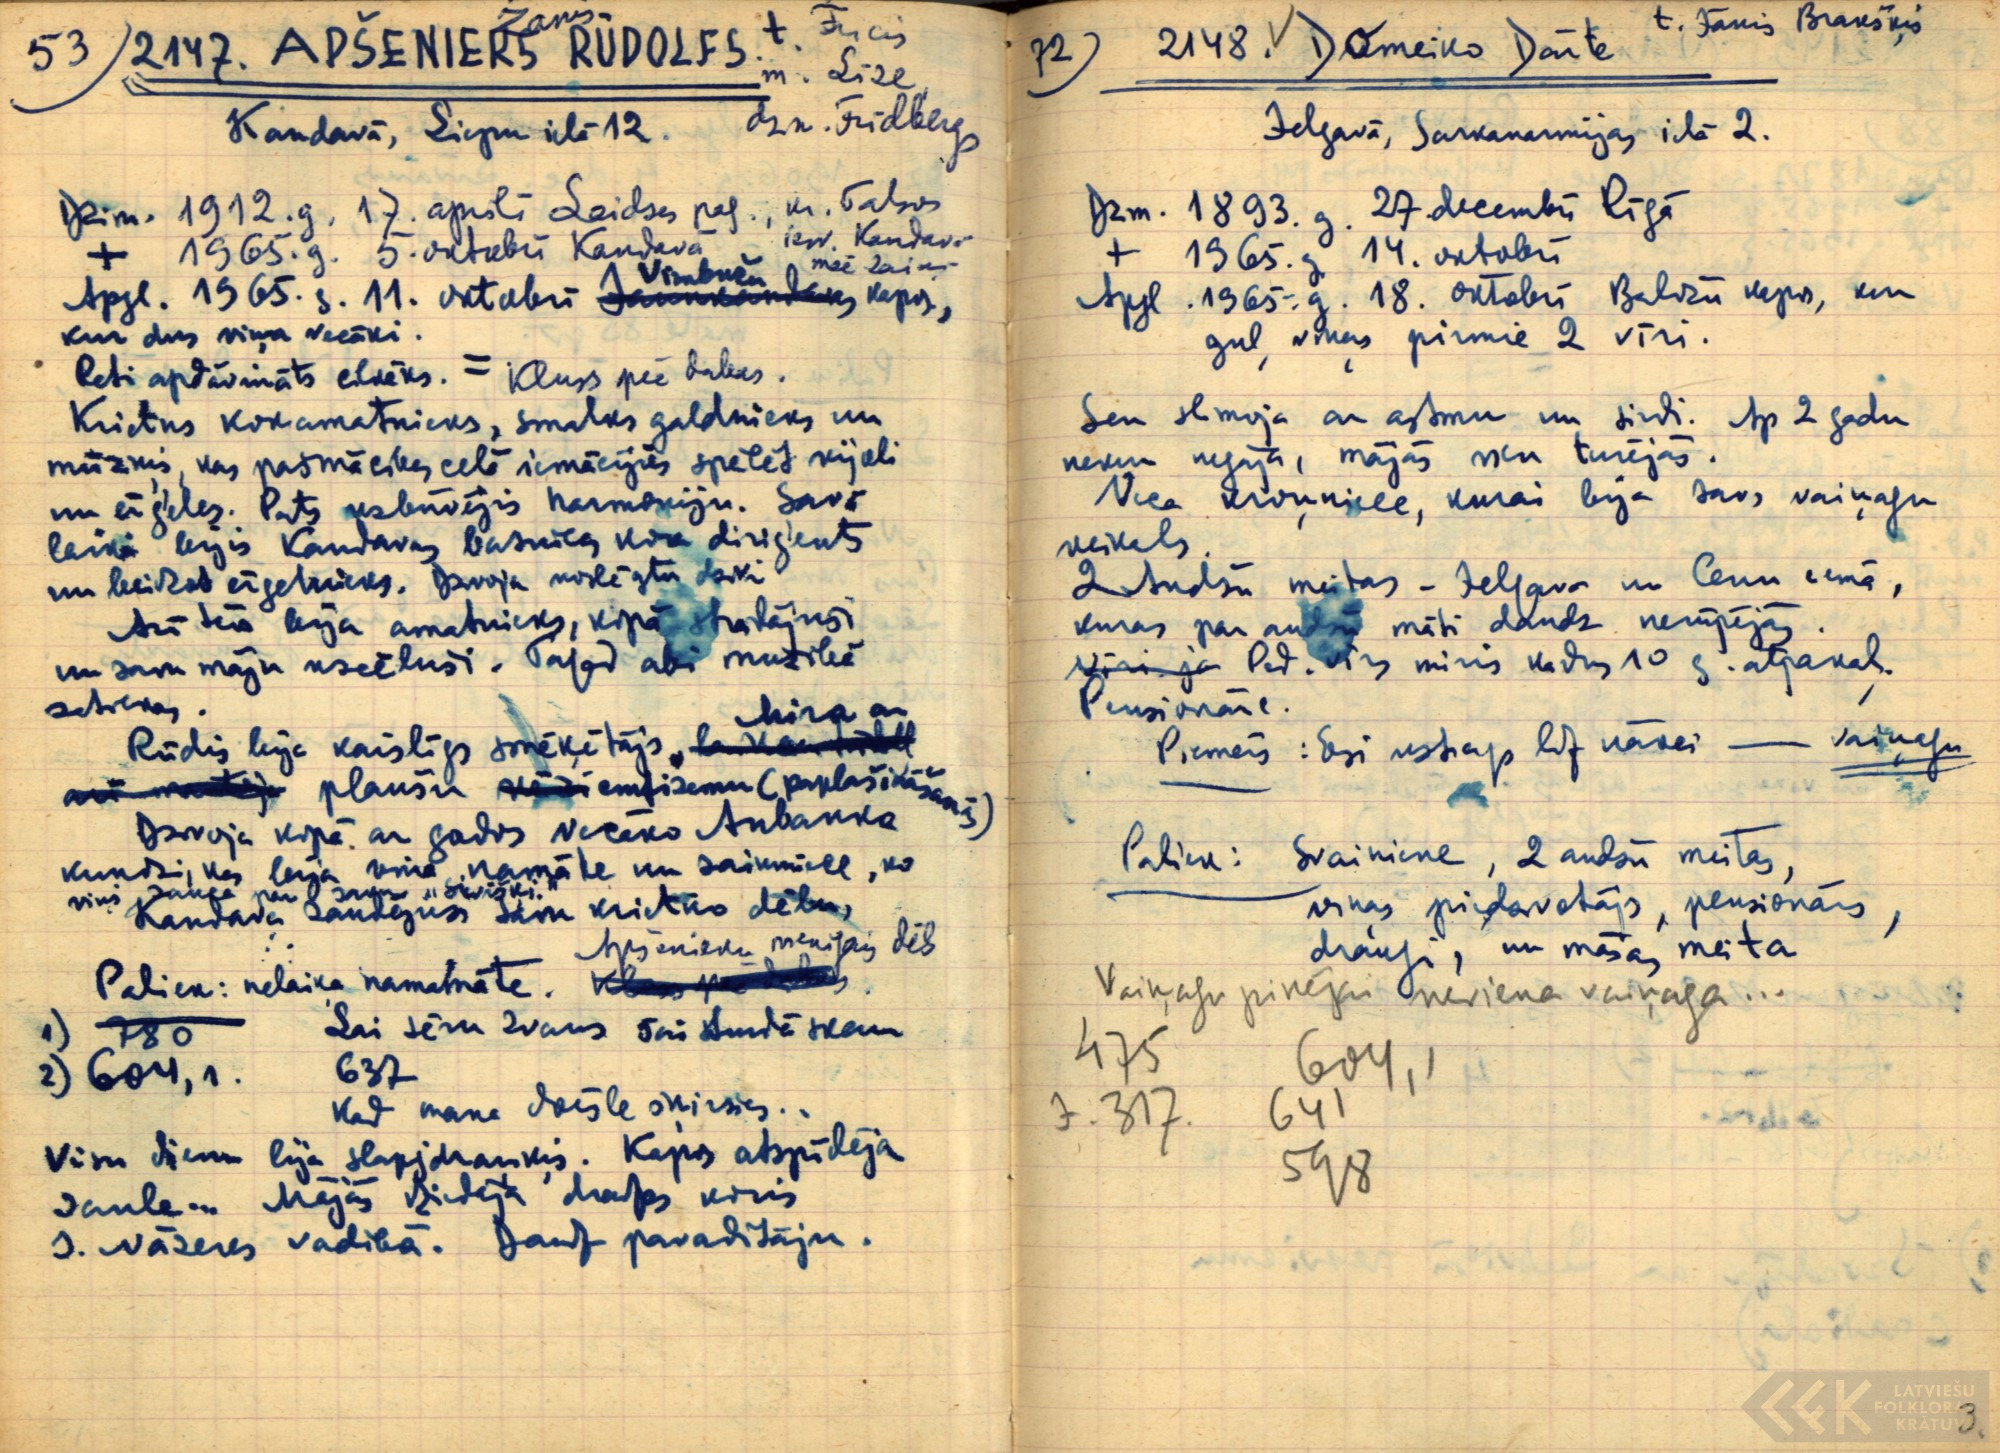 53) 2147. APŠENIERS Žanis RŪDOLFS. t. Fricis
m. Līze
dzn. Frīdbergs
Kandavā, Liepu ielā 12.
Dzim. 1912.g. 17. aprīlī Laidzes pag., kr. Talsos
+ 1965.g. 5. oktobrī Kandavā iesv. Kandavā
Apgl. 1965.g. 11. oktobrī Vimbuču kapos,
kur dus viņa vecāki.
Reti apdāvināts cilvēks. = Kluss pēc dabas.
Krietns kokamatnieks, smalks galdnieks un
mūziķis, kas pašmācības ceļā iemācījies spēlēt vijoli
un ērģeles. Pats uzbūvējis harmoniju. Savā
laikā bijis Kandavas baznīcas kora diriģents
un beidzot ērģelnieks. Dzīvoja noslēgtu dzīvi
Arī tēvs bija amatnieks, kopā strādājuši
un savu māju uzcēluši. Tagad abi mūžībā
satiekas.
Rūdis bija kaislīgs smēķētājs. Mira ar
plaušu emfizēmu (paplašināšanos)
Dzīvoja kopā ar gados vecāko Aubarka
kundzi, kas bija viņa namamāte un saimniece, ko
viņš sauca par savu
Kandava zaudējusi savu krietno dēlu,
Apšenieku vienīgais dēls
Paliek: nelaiķa namamāte.
1) 780 Lai sēru zvans šai stundā skan
2) 604,1. 637
Kad mana dvēsle šķirsies..
Visu dienu lija slapjdraņķis. Kapos atspīdēja
saule... Mājās dziedāja draudzes koris
J. Nāzeres vadībā. Daudz pavadītāju.
72) 2148. ✓ Domeiko Dārte t. Jānis Brakšķis
Jelgavā, Sarkanarmijas ielā 2.
Dzm. 1893.g. 27. decembrī Rīgā
+ 1965.g. 14. oktobrī
Apgl. 1965.g. 18. oktobrī Baložu kapos, kur
guļ viņas pirmie 2 vīri.
Sen slimoja ar astmu un sirdi. Ap 2 gadu
nekur negāja, mājās vien turējās.
Veca kroņniece, kurai bija savs vaiņagu
veikals.
2 Audžu meitas - Jelgavā un Cenu ciemā,
kuras par audžu māti daudz nerūpējās.
Pēd. vīrs miris kādus 10 g. atpakaļ.
Pensionāre.
Piemērs: Esi uzticīgs līdz nāvei — vaiņagu
Paliek: Svainiene, 2 audžu meitas,
viņas piedzīvotājs, pensionārs,
draugi, un māsas meita
Vaiņagu pinējai neviena vaiņaga...
475 604,1
J. 317. 641
598
LATVIEŠU
FOLKLORAS
KRĀTUVE
3.